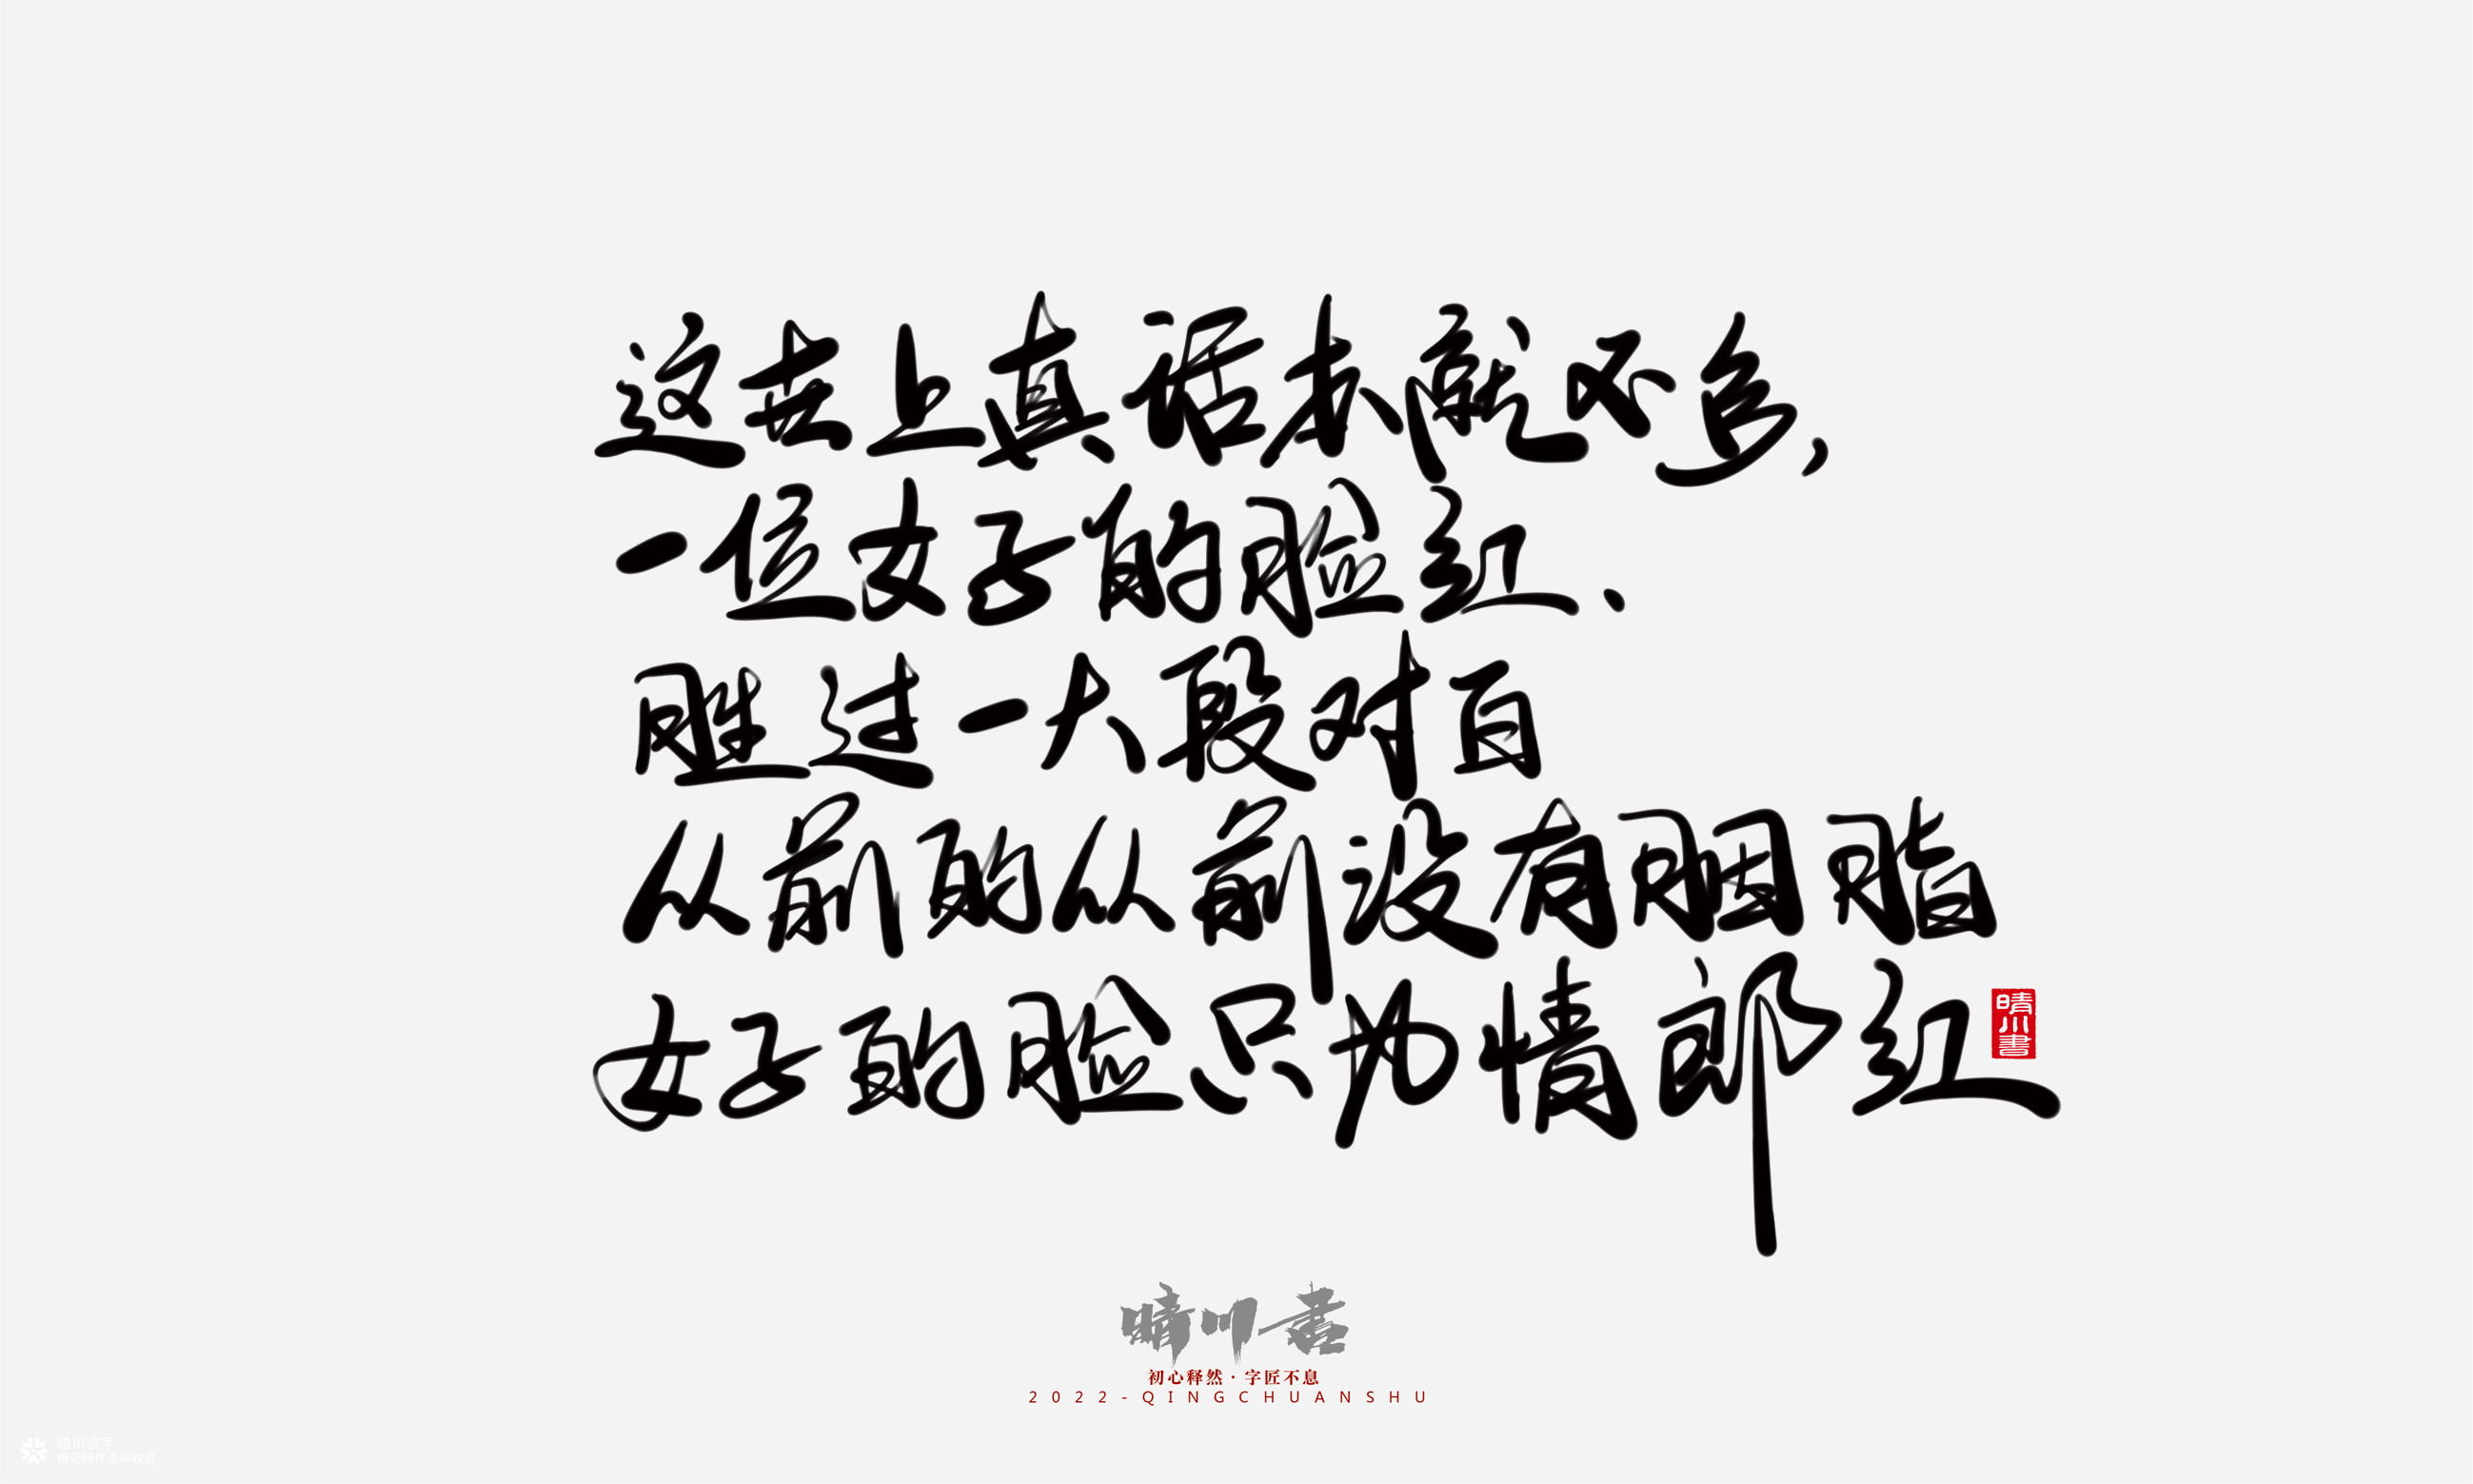 这世上真话本就不多,
一位女子的脸红、
胜过一大段对白
从前的从前没有胭脂
女子的脸只为情郎红
晴川書
晴川書
初心释然·字匠不息
2022-QINGCHUANSHU
晴川造字
梅花网作品库收录